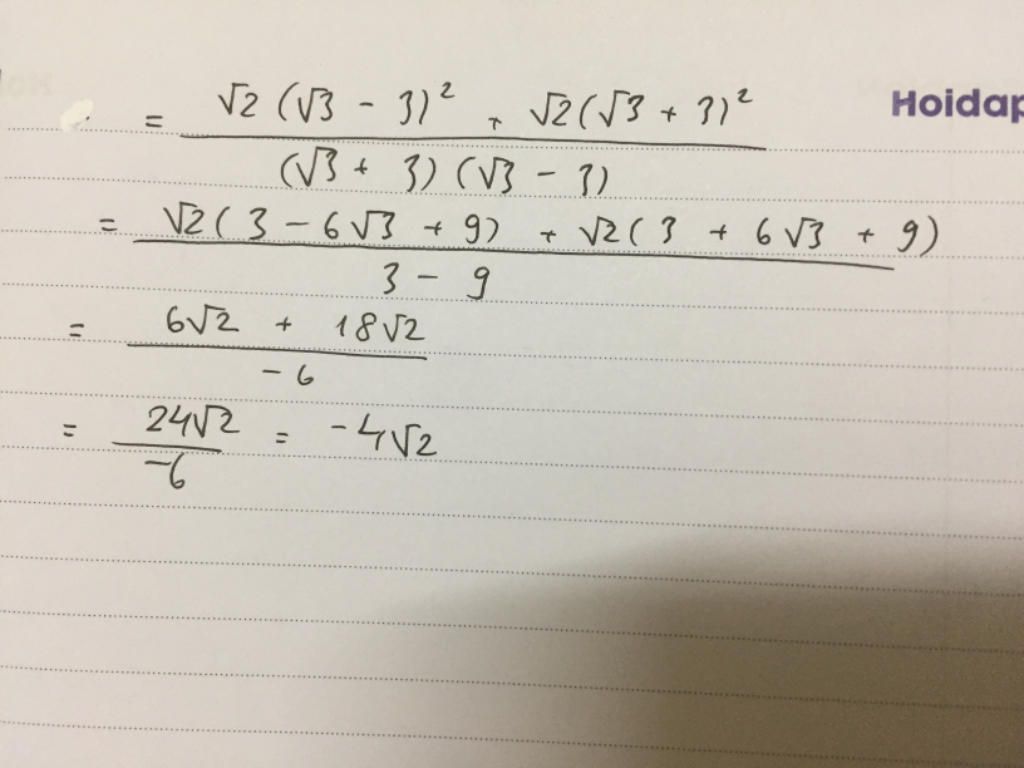 = (√2 (√3 - 3)² + √2 (√3 + 3)²) / ((√3 + 3) (√3 - 3))
Hoidap
= (√2 ( 3 - 6√3 + 9) + √2 ( 3 + 6√3 + 9)) / (3 - 9)
= (6√2 + 18√2) / (-6)
= 24√2 / -6 = -4√2